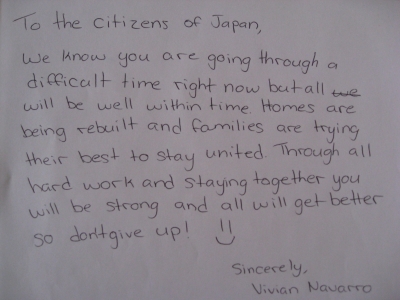 To the citizens of Japan,
We know you are going through a
difficult time right now but all we
will be well within time. Homes are
being rebuilt and families are trying
their best to stay united. Through all
hard work and staying together you
will be strong and all will get better
so don't give up! =)
Sincerely,
Vivian Navarro